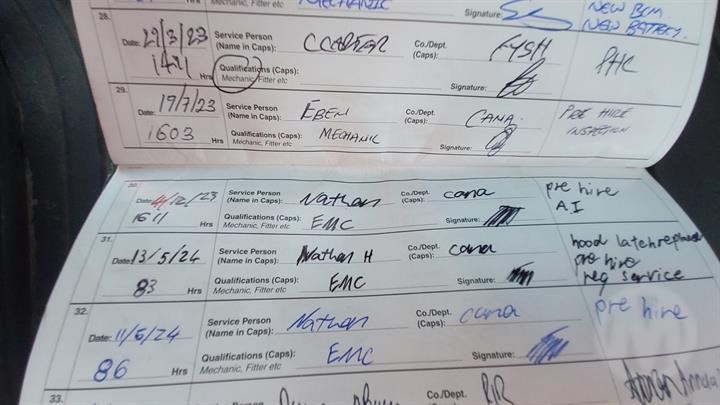 MECHANIC
Mechanic, Fitter etc
Signature:
NEW BCM
NEW BATTERY.
28.
Date: 29/3/23
Service Person
(Name in Caps):
C CARTER
Co./Dept.
(Caps):
FYSH
PHC
1471 Hrs
Qualifications (Caps):
Mechanic, Fitter etc
Signature:
29.
Date: 19/7/23
Service Person
(Name in Caps):
EBEN
Co./Dept.
(Caps):
CANA.
PRE HIRE
INSPECTION
1603 Hrs
Qualifications (Caps):
Mechanic, Fitter etc
MECHANIC
Signature:
30.
Date: 4/12/23
Service Person
(Name in Caps):
Nathan
Co./Dept.
(Caps):
cana
pre hire
A.I
1611 Hrs
Qualifications (Caps):
Mechanic, Fitter etc
EMC
Signature:
31.
Date: 13/5/24
Service Person
(Name in Caps):
Nathan H
Co./Dept.
(Caps):
cana
hood latch
pre hire
reg service
83 Hrs
Qualifications (Caps):
Mechanic, Fitter etc
EMC
Signature:
32.
Date: 11/6/24
Service Person
(Name in Caps):
Nathan
Co./Dept.
(Caps):
cana
pre hire
86 Hrs
Qualifications (Caps):
Mechanic, Fitter etc
EMC
Signature:
33.
Service Person
Co./Dept.